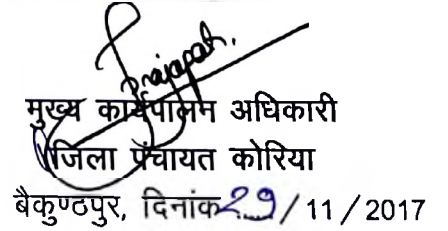 Prajapati.
मुख्य कार्यपालन अधिकारी
जिला पंचायत कोरिया
बैकुण्ठपुर, दिनांक 29 / 11 / 2017